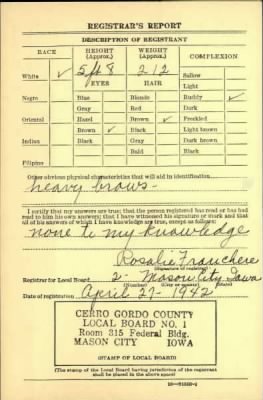 REGISTRAR'S REPORT
DESCRIPTION OF REGISTRANT
RACE HEIGHT (Approx.) WEIGHT (Approx.) COMPLEXION
White ✓ 5 ft 8 212 Sallow
EYES HAIR Light
Negro Blue Blonde Ruddy ✓
Gray Red Dark
Oriental Hazel Brown ✓ Freckled
Brown ✓ Black Light brown
Indian Black Gray Dark brown
Bald Black
Filipino
Other obvious physical characteristics that will aid in identification
heavy brows-
I certify that my answers are true; that the person registered has read or has had
read to him his own answers; that I have witnessed his signature or mark and that
all of his answers of which I have knowledge are true, except as follows:
none to my knowledge
Rosalie Franchere
(Signature of registrar)
Registrar for Local Board 2- Mason City, Iowa
(Number) (City or county) (State)
Date of registration April 27-1942
CERRO GORDO COUNTY
LOCAL BOARD NO. 1
Room 315 Federal Bldg.
MASON CITY IOWA
(STAMP OF LOCAL BOARD)
(The stamp of the Local Board having jurisdiction of the registrant
shall be placed in the above space)